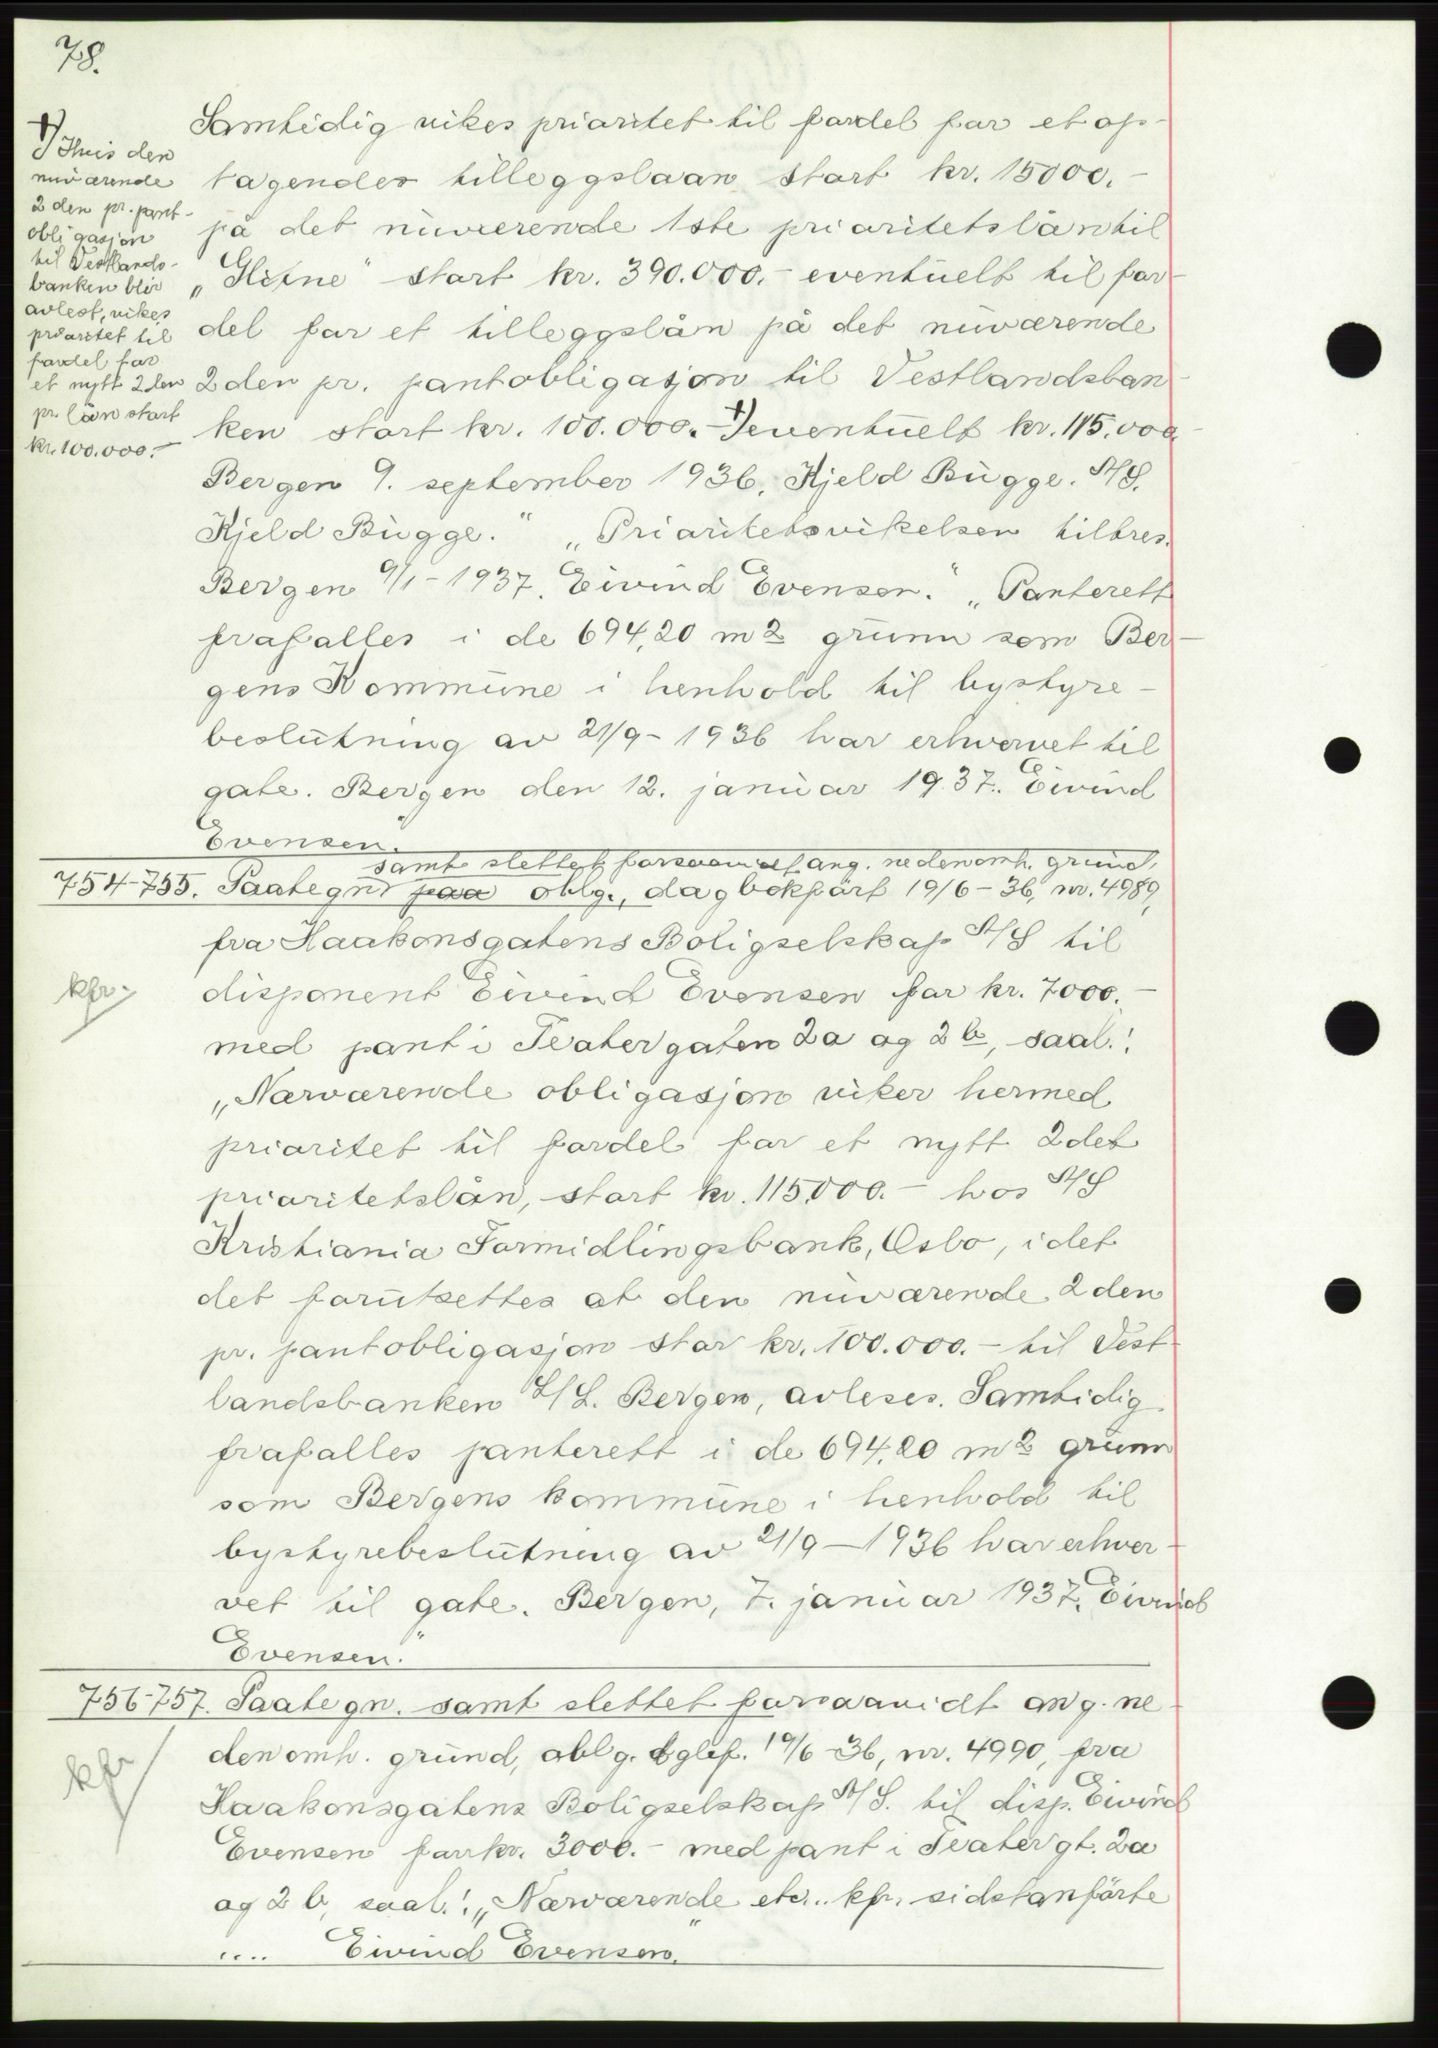 78.
+) Hvis den
nuværende
2den pr. pant-
obligasjon
til Vestlands-
banken blir
avløst, vikes
prioritet til
fordel for
et nytt 2den
pr. lån stort
kr. 100.000.-
Samtidig vikes prioritet til fordel for et op-
tagendes tilleggslaan stort kr. 15000.-
på det nuværende 1ste prioritetslån til
„Glitne" stort kr. 390.000.- eventuelt til for-
del for et tilleggslån på det nuværende
2den pr. pantobligasjon til Vestlandsban-
ken stort kr. 100.000.- +) eventuelt kr. 115.000.
Bergen 9. september 1936. Kjeld Bugge. A/S.
Kjeld Bugge." „Prioritetsvikelsen tiltres.
Bergen 9/1-1937. Eivind Evensen." „Panterett
frafalles i de 694,20 m2 grunn som Ber-
gens Kommune i henhold til bystyre-
beslutning av 21/9-1936 har erhvervet til
gate. Bergen den 12. januar 1937. Eivind
Evensen."
samt slettet forsaavidt ang. nedenomh. grund,
754-755. Paategn. paa oblg., dagbokført 19/6-36, nr. 4989,
fra Haakonsgatens Boligselskap A/S til
kfr.
disponent Eivind Evensen for kr. 7000.-
med pant i Teatergaten 2a og 2b, saal.:
„Nærværende obligasjon viker hermed
prioritet til fordel for et nytt 2det
prioritetslån, stort kr. 115.000.- hos A/S
Kristiania Formidlingsbank, Oslo, idet
det forutsettes at den nuværende 2den
pr. pantobligasjon stor kr. 100.000.- til Vest-
landsbanken L/L. Bergen, avløses. Samtidig
frafalles panterett i de 694,20 m2 grunn
som Bergens kommune i henhold til
bystyrebeslutning av 21/9-1936 har erhver-
vet til gate. Bergen, 7. januar 1937. Eivind
Evensen."
756-757. Paategn. samt slettet forsaavidt ang. ne-
kfr
denomh. grund, oblg. dglf. 19/6-36, nr. 4990, fra
Haakonsgatens Boligselskap A/S. til disp. Eivind
Evensen for kr. 3000.- med pant i Teatergt. 2a
og 2b, saal.: „Nærværende etc.. kfr. sidstanførte
.... Eivind Evensen."